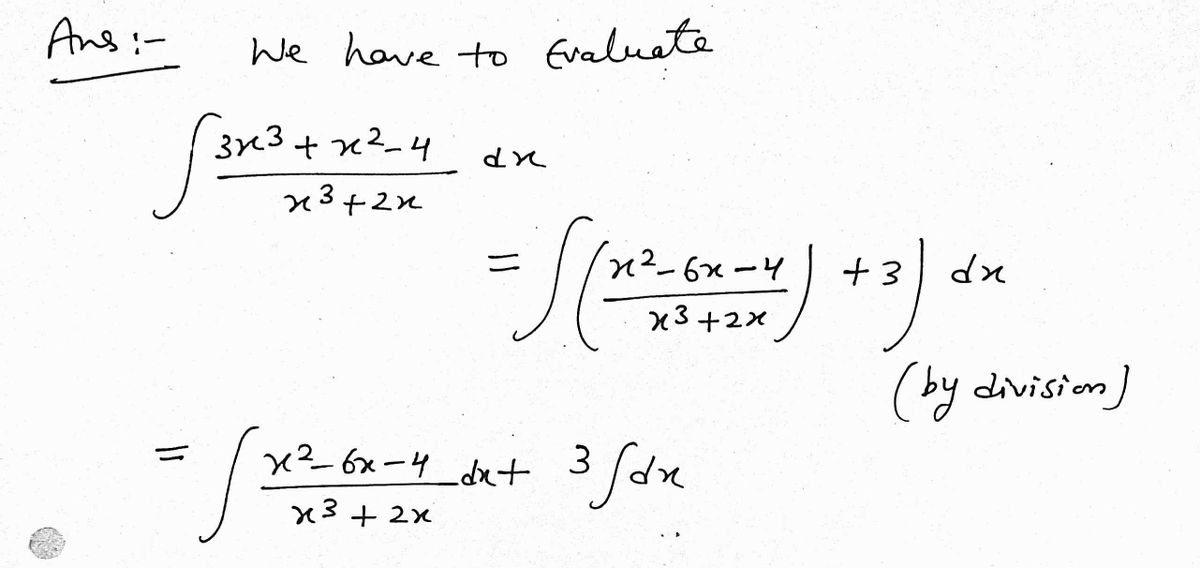 Ans :- We have to Evaluate
∫ (3x^3 + x^2 - 4)/(x^3 + 2x) dx
= ∫ ((x^2 - 6x - 4)/(x^3 + 2x)) + 3) dx
(by division)
= ∫ (x^2 - 6x - 4)/(x^3 + 2x) dx + 3 ∫ dx